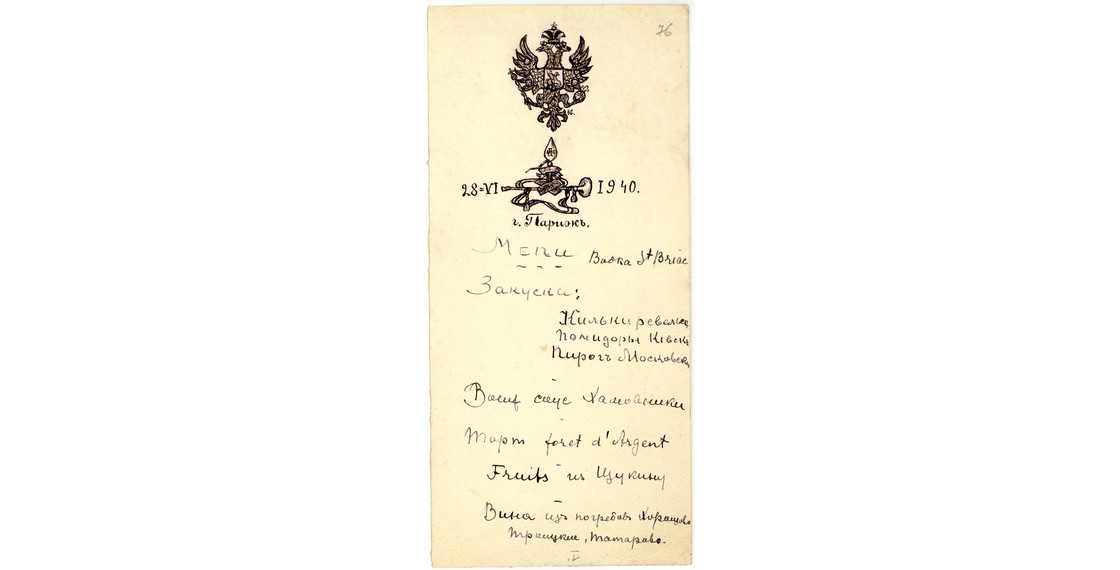 76
28=VI 1940.
г. Парижъ.
Меню Водка St Briac
Закуски:
Помидоры Кіевск
Пирогъ Московск
Boeuf соус Хамовники
Торт foret d'Argent
Fruits из Щукину
Вина изъ погребовъ Хорошово
Троицкое, Татарово.